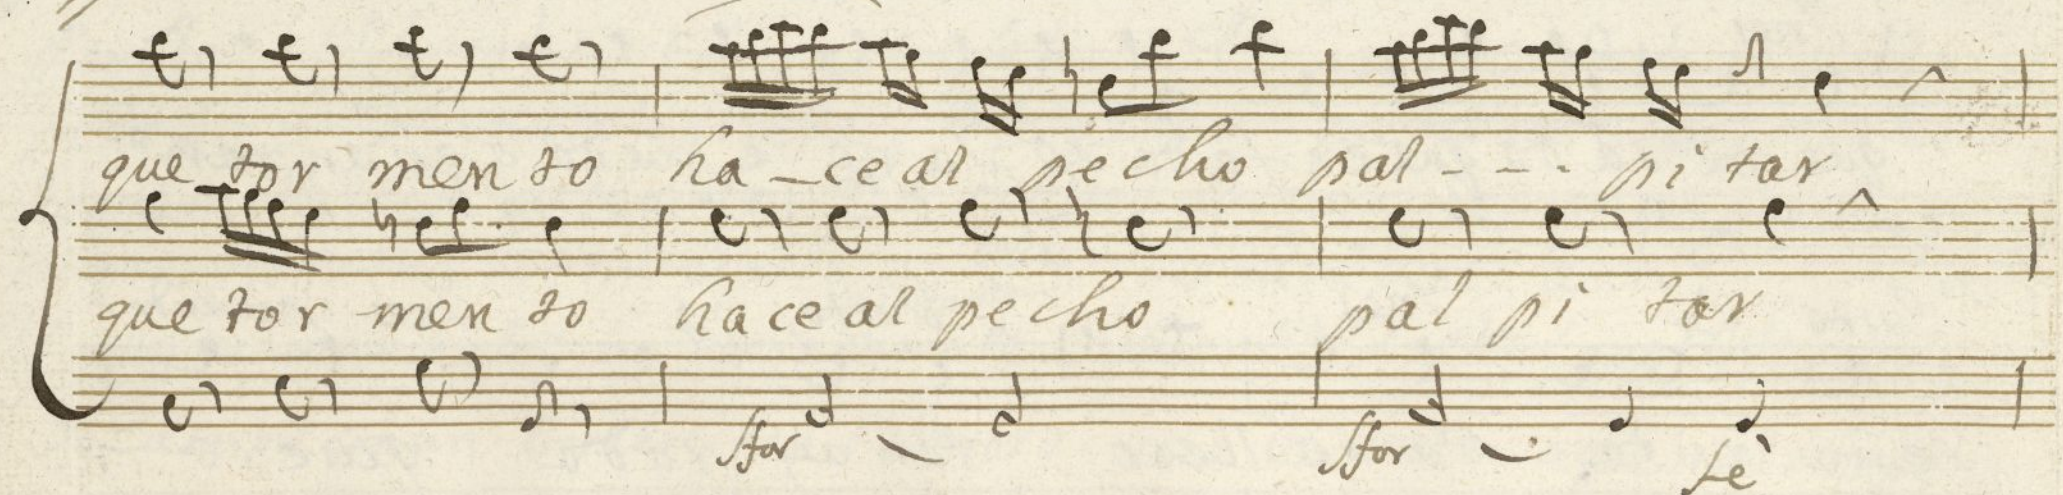 que tor men to ha - ce al pe cho pal - - - pi tar
que tor men to ha ce al pe cho pal pi tar
sfor sfor